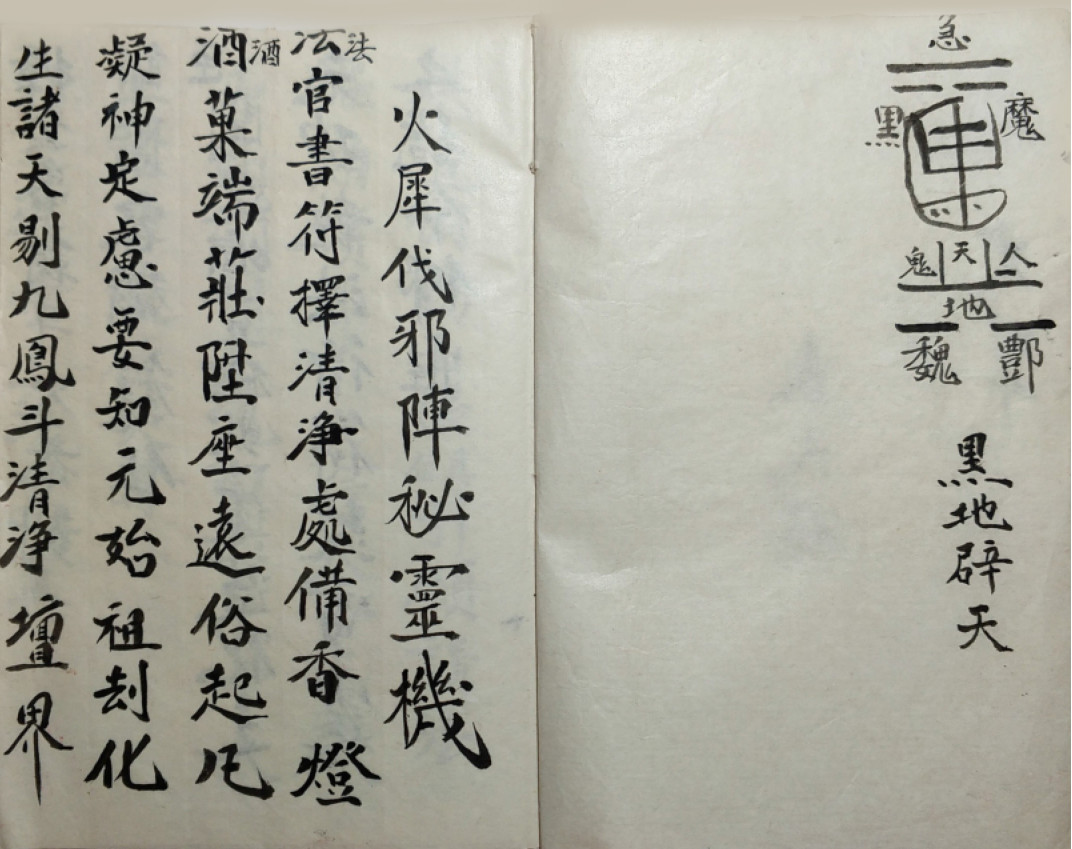 急
黑 魔
鬼 天 人
地
魏 酆
黑地辟天
火犀伐邪陣秘靈機
法官書符擇清浄處備香燈
法
酒菓端莊陞座遠俗起凡
酒
凝神定慮要知元始祖刦化
生諸天剔九鳳斗清浄壇界